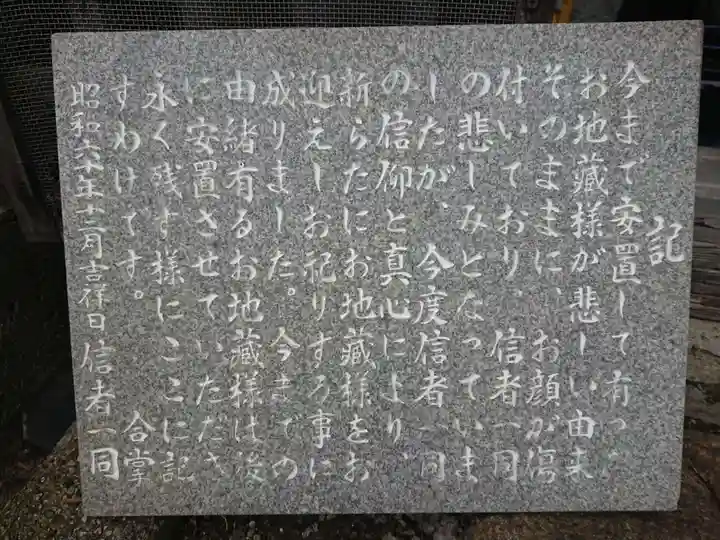 記
今まで安置して有った
お地藏様が悲しい由来
そのままに、お顔が傷
付いており、信者一同
の悲しみとなっていま
したが、今度信者一同
の信仰と真心により、
新らたにお地藏様をお
迎えしお祀りする事に
成りました。今までの
由緒有るお地藏様は後
に安置させていただき
永く残す様にここに記
すわけです。 合掌
昭和六十年十二月吉祥日 信者一同